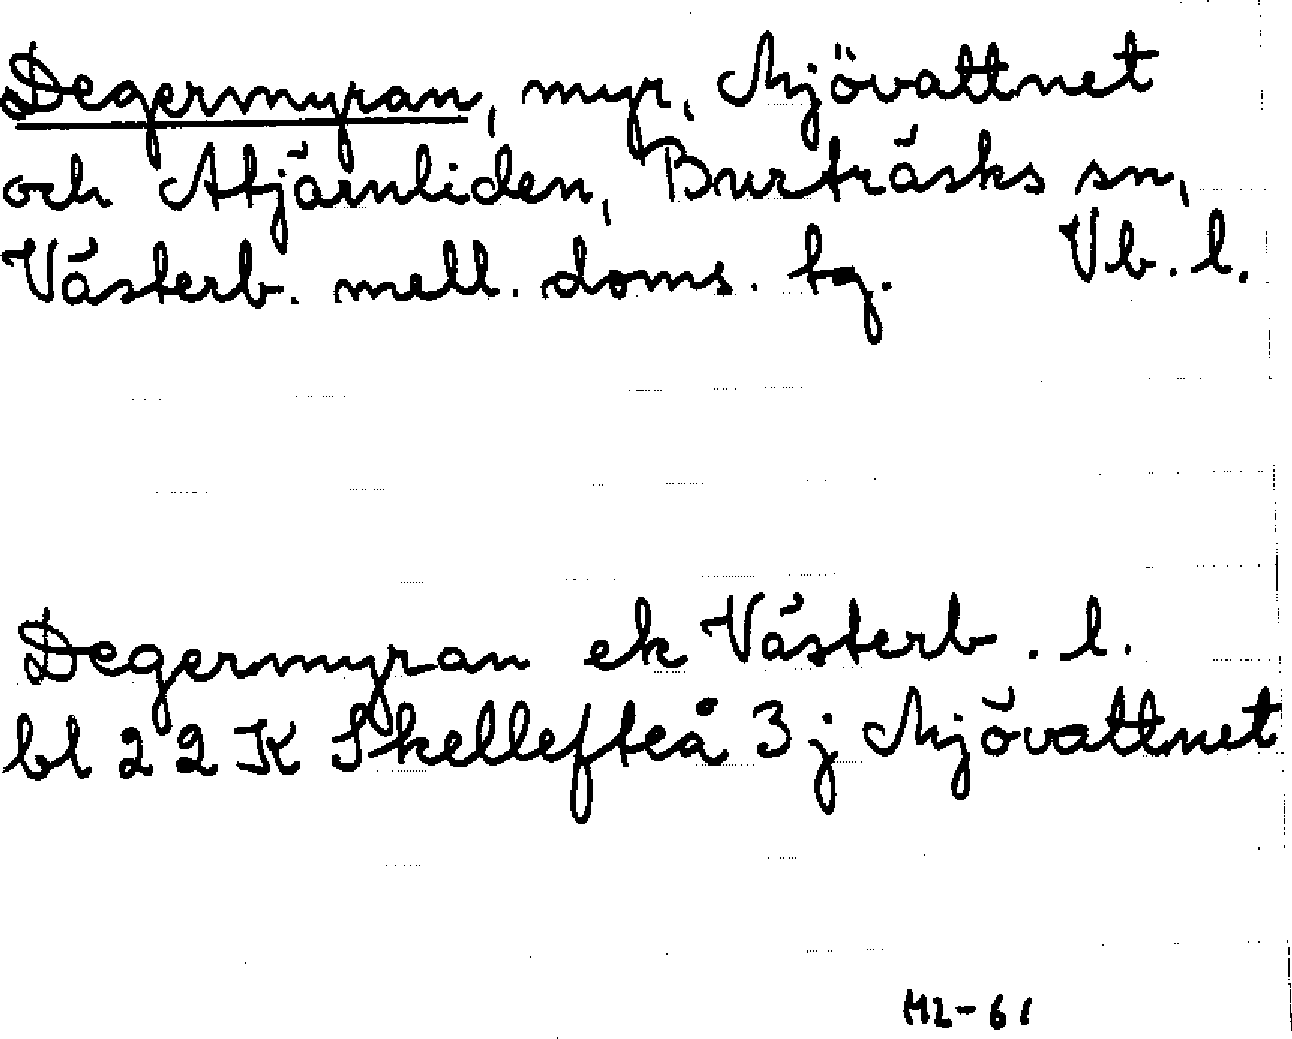 Degermyran, myr, Mjövattnet
och Atjärnliden, Burträsks sn,
Västerb. mell. doms. tg. Vb. l.
Degermyran ek Västerb. l.
bl 22 K Skellefteå 3 j Mjövattnet
ML-61